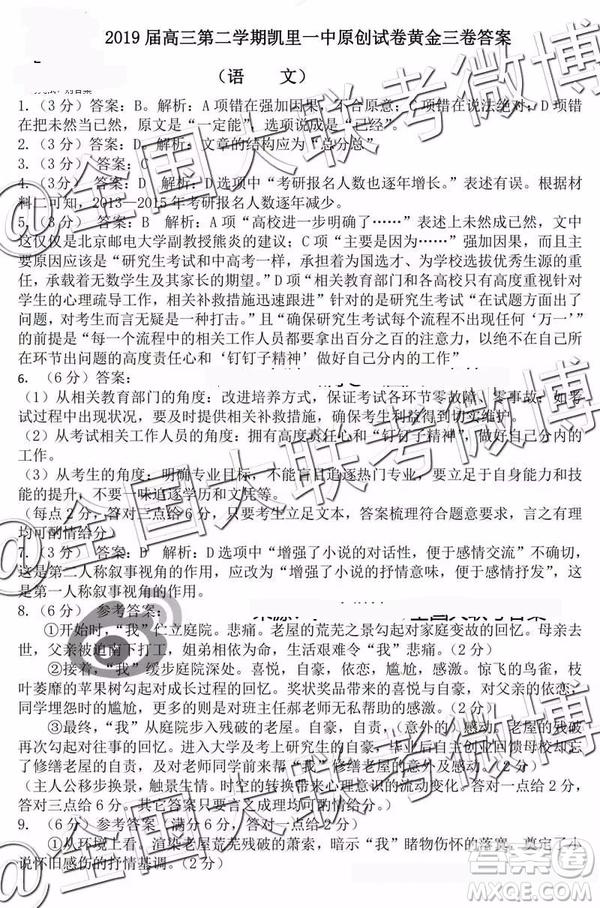 2019 届高三第二学期凯里一中原创试卷黄金三卷答案
（语 文）
1.（3 分）答案：B。解析：A 项错在强加因果，不合原意；C 项错在说法绝对；D 项错
在把未然当已然，原文是“一定能”，选项说成是“已经”。
2.（3 分）答案：D 解析：文章的结构应为“总分总”
3.（3 分）答案：
4.（3 分）答案： “考研报名人数也逐年增长。”表述有误。根据材
料二可知，2013—2015 年考研报名人数逐年减少。
5.（3 分）答案：B 解析：A 项“高校进一步明确了……”表述上未然成已然，文中
这仅仅是北京邮电大学副教授熊炎的建议；C 项“主要是因为……”强加因果，而且
主要原因应该是“研究生考试和中高考一样，承担着为国选才、为高校选拔优秀生源的重
任，承载着无数学生及其家长的期望。”D 项“相关教育部门和各高校只有高度重视针对
学生的心理疏导工作，并相关补救措施避免该现象发生”针对的是研究生考试“在试题方面出了
问题，对考生而言无疑是一种打击。”且“确保研究生考试每个流程不出现任何‘万一’”
的前提是“每一个流程、每一个工作人员都要拿出百分之百的注意力，以绝不容有自己所
在环节出问题的高度责任心和‘钉钉子精神’做好自己分内的工作”
6.（6 分）答案：
（1）从相关教育部门的角度：改进培养方式，保证考试各环节零故障、零事故；如考
试过程中出现问题，应及时提供相关补救措施，确保考生利益得到切实保障。
（2）从考试相关工作人员的角度：拥有高度责任心和“钉钉子精神”，做好自己分内的
工作。
（3）从考生的角度：明确专业目标，不能盲目追逐热门专业，要立足于自身素质与技
能的提升，不要一味追逐学历和文凭等。
（每点 2 分，答对三点给 6 分，意思对即可。答案梳理符合题意要求，言之有理
均可酌情给分。）
7.（3 分）答案：D 解析：D 选项中“增强了小说的对话性，便于感情交流”不对，
这是第二人称叙事视角的作用，应改为“增强了小说的抒情意味，便于感情抒发”。
8.（6 分） 参考答案：
①开始时，“我”伫立庭院。悲痛。老屋的荒芜之景勾起对家庭变故的回忆。母亲去
世，父亲被迫南下打工，姐弟相依为命，生活在艰难困苦之中。（2 分）
②接着，“我”缓步庭院深处。喜悦，自豪，依恋，尴尬，感激。惊飞的鸟雀，枝
叶萎靡的苹果树勾起对成长过程的回忆。奖状奖品带来的喜悦、自豪，对父亲的依恋，
同学埋怨时的尴尬，以及自己对班主任郝老师无私帮助的感激。（2 分）
③最终，“我”从庭院外步入残破的老屋。自豪，自责，伟人画像和残破的老屋
再次勾起对家的回忆。进入大学及考上研究生的自豪，参加工作后未能回馈母校和忘
了修缮老屋的自责，以及老师修缮老屋的感激。（2 分）
（主人公移步换景，触景生情。时空的转换带来心理意识的流动。答对一点给 2 分，
答对三点给 6 分。其它答案只要符合题意亦可酌情给分。）
9.（6 分）参考答案（满分 6 分。答对一点给 2 分）
①从环境看，渲染老屋荒芜残破的萧索氛围，暗示“我”睹物伤怀的落寞，奠定了小
说怀旧感伤的抒情基调。（2 分）
@全国大联考微博
答案圈